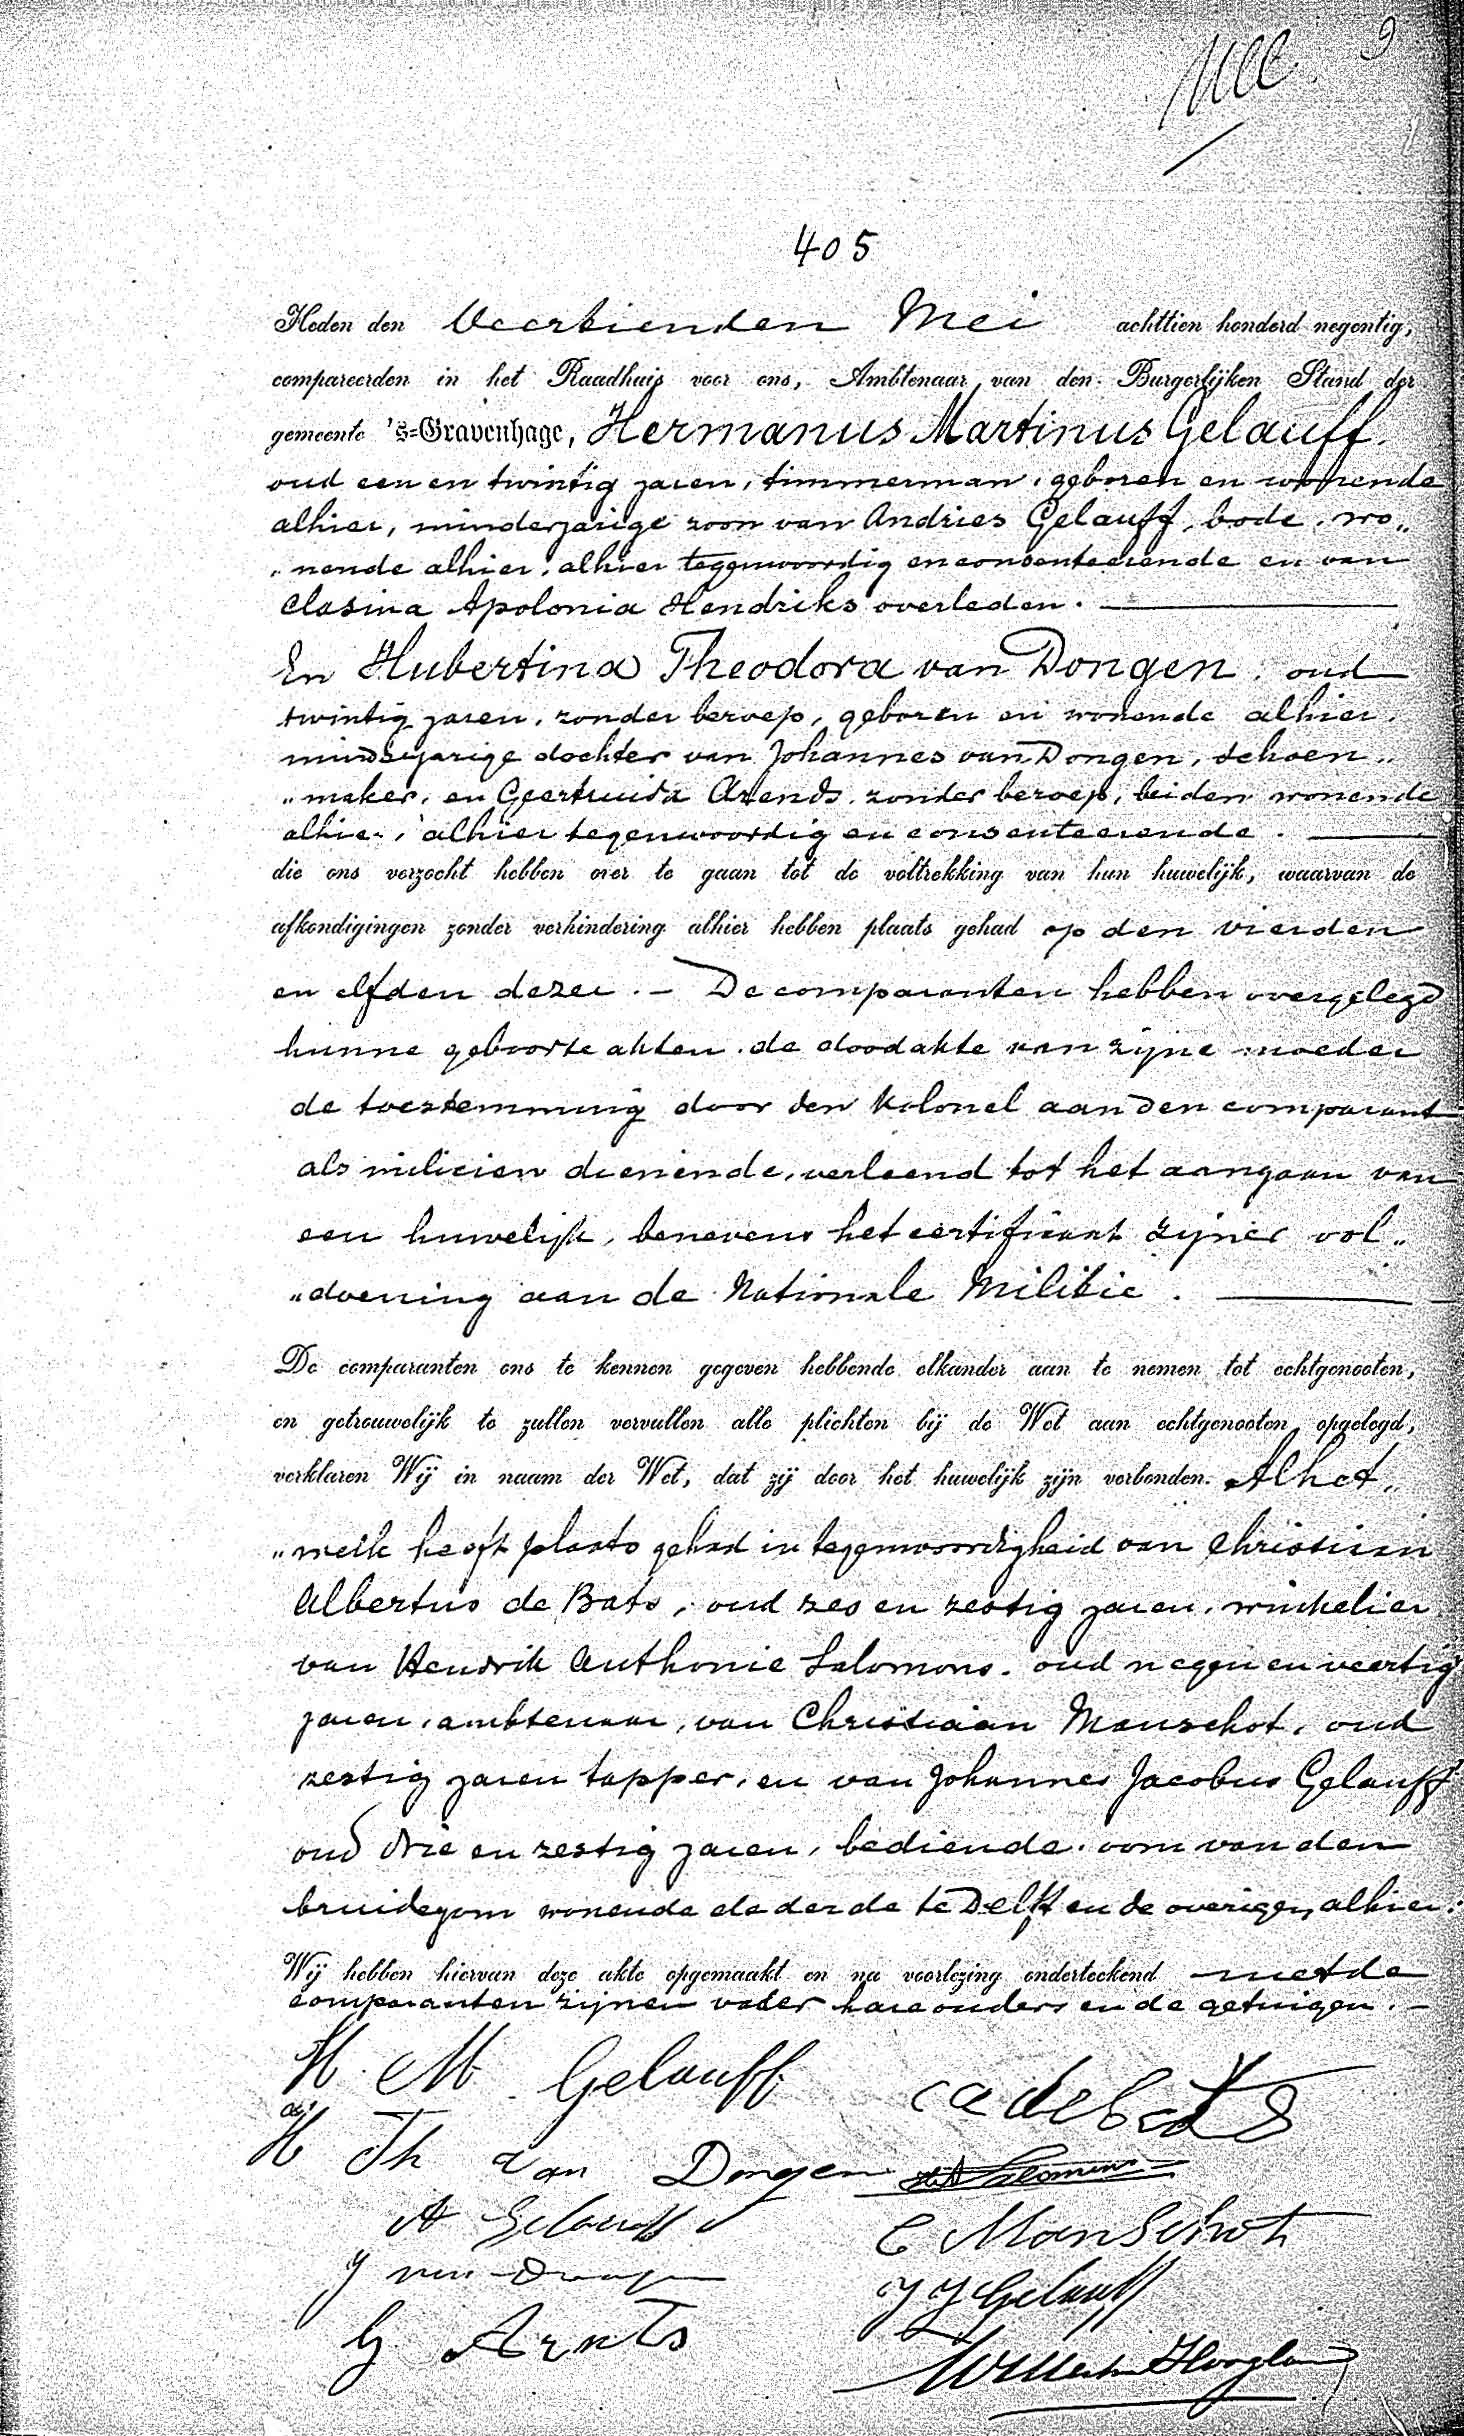 9
405
Heden den Veertienden Mei achttien honderd negentig,
compareerden in het Raadhuis voor ons, Ambtenaar van den Burgerlijken Stand der
gemeente 's-Gravenhage, Hermanus Martinus Gelauff.
oud een en twintig jaren, timmerman, geboren en wonende
alhier, minderjarige zoon van Andries Gelauff, bode, wo„
„nende alhier, alhier tegenwoordig en consenteerende en van
Clasina Apolonia Hendriks overleden.
En Hubertina Theodora van Dongen, oud
twintig jaren, zonder beroep, geboren en wonende alhier,
minderjarige dochter van Johannes van Dongen, schoen„
„maker, en Geertruida Arends, zonder beroep, beiden wonende
alhier, alhier tegenwoordig en consenteerende.
die ons verzocht hebben over te gaan tot de voltrekking van hun huwelijk, waarvan de
afkondigingen zonder verhindering alhier hebben plaats gehad op den vierden
en elfden dezer. – De comparanten hebben overgelegd
hunne geboorte akten, de doodakte van zijne moeder
de toestemming door den Kolonel aan den comparant
als milicien dienende, verleend tot het aangaan van
een huwelijk, benevens het certificaat zijner vol„
„doening aan de Nationale Militie.
De comparanten ons te kennen gegeven hebbende elkander aan te nemen tot echtgenooten,
en getrouwelijk te zullen vervullen alle plichten bij de Wet aan echtgenooten opgelegd,
verklaren Wij in naam der Wet, dat zij door het huwelijk zijn verbonden. Al het„
„welk heeft plaats gehad in tegenwoordigheid van Christiaan
Albertus de Bats, oud zes en zestig jaren, winkelier
van Hendrik Anthonie Salomons, oud negen en veertig
jaren, ambtenaar, van Christiaan Manschot, oud
zestig jaren tapper, en van Johannes Jacobus Gelauff
oud drie en zestig jaren, bediende, oom van den
bruidegom wonende de derde te Delft en de overigen alhier.
Wij hebben hiervan deze akte opgemaakt en na voorlezing onderteekend met de
comparanten zijnen vader hare ouders en de getuigen. –
H. M. Gelauff
C A de Bats
H Th van Dongen
HA Salomons
A Gelauff
C Manschot
J van Dongen
J J Gelauff
G Arnts